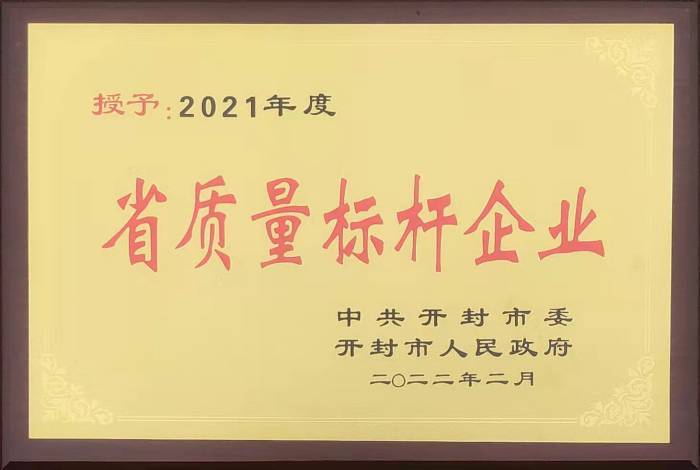 授予:2021年度
省质量标杆企业
中共开封市委
开封市人民政府
二〇二二年二月